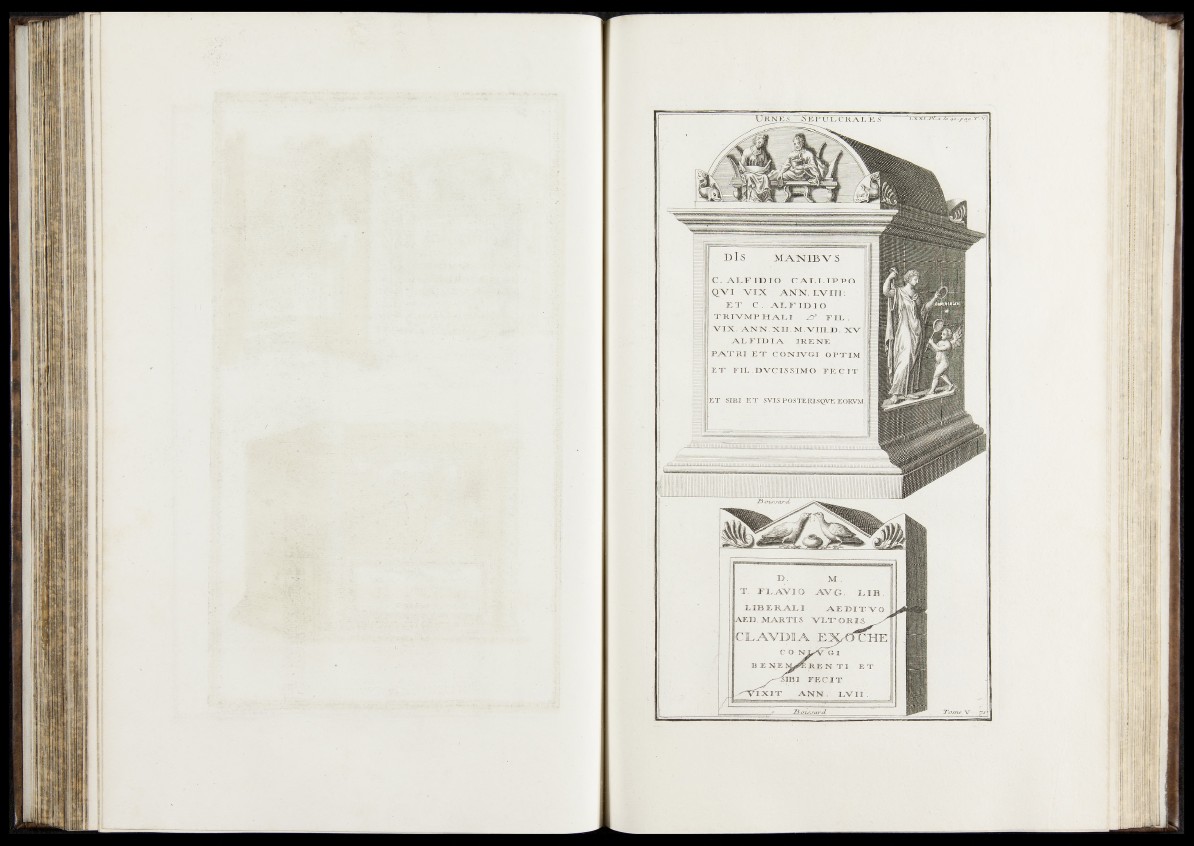 URNES SEPULCRALES
DIS MANIBVS
C. ALFIDIO CALLIPPO
QVI VIX ANN. LVIII.
ET C. ALFIDIO
TRIVMPHALI FIL.
VIX. ANN. XII. M. VIII. D. XV
ALFIDIA IRENE
PATRI ET CONIVGI OPTIM
ET FIL. DVCISSIMO FECIT
ET SIBI ET SVIS POSTERISQVE EORVM
Boissard
D. M.
T. FLAVIO AVG. LIB.
LIBERALI AEDITVO
AED. MARTIS VLTORIS
CLAVDIA EXOCHE
CONIVGI
BENEMERENTI ET
SIBI FECIT
VIXIT ANN. LVII.
Boissard
Tome V